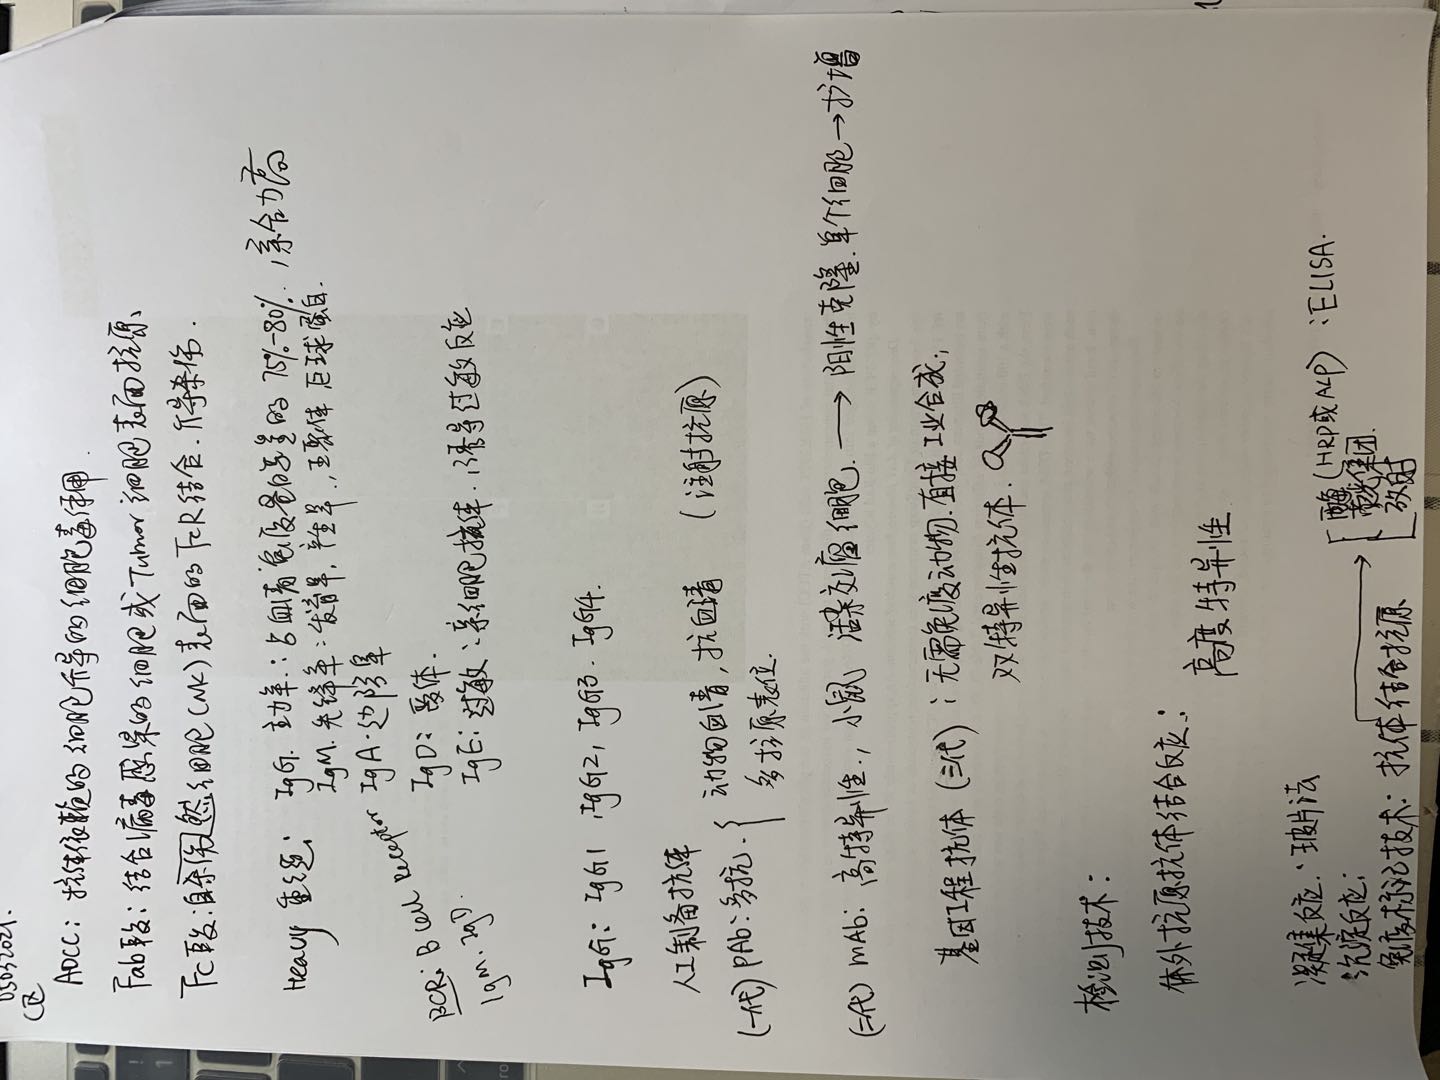 05032021.
C区
ADCC：抗体依赖的细胞介导的细胞毒作用.
Fab段：结合病毒感染的细胞或Tumor细胞表面抗原、
Fc段：自杀伤然细胞(NK)表面的FcR结合.介导杀伤.
Heavy 重链：IgG. 主力军：占血清免疫蛋白总量的75%-80%，亲合力高
IgM. 先锋军：发育早，产生早，五聚体 巨球蛋白.
IgA·边防军
BCR: B cell Receptor
IgM. IgD.
IgD：受体.
IgE：过敏：亲细胞抗体.，诱导过敏反应
IgG：IgG1，IgG2，IgG3. IgG4.
人工制备抗体
(一代) pAb：多抗. { 动物血清，抗血清 (注射抗原)
多抗原表位.
(二代) mAb：高特异性.，小鼠 杂交瘤细胞. → 阳性克隆.单个细胞→扩增
基因工程抗体(三代)：无需免疫动物.直接工业合成，
双特异性抗体.
检测技术：
体外抗原抗体结合反应：
高度特异性
凝集反应.：玻片法
沉淀反应：
免疫标记技术：抗体结合抗原 → [ 酶(HRP或ALP)：ELISA.
荧光集团.
放射